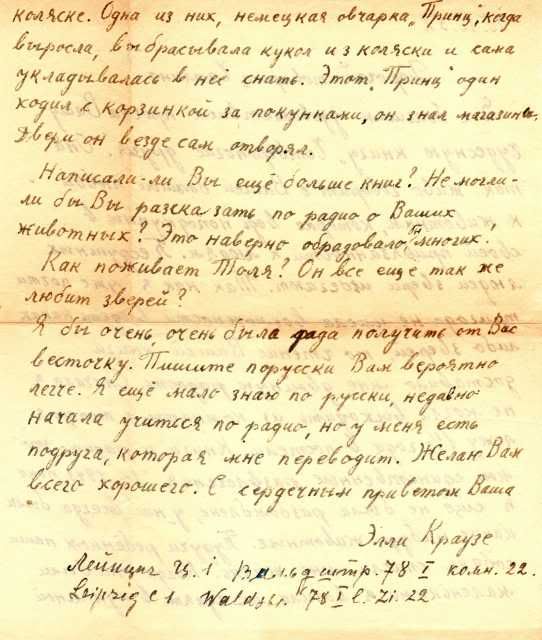 коляске. Одна из них, немецкая овчарка, "Принц", когда
выросла, выбрасывала кукол из коляски и сама
укладывалась в неё спать. Этот "Принц" один
ходил с корзинкой за покупками, он знал магазины,
двери он везде сам отворял.
Написали-ли Вы ещё больше книг? Не могли-
ли бы Вы рассказать по радио о Ваших
животных? Это наверно обрадовало бы многих.
Как поживает Толя? Он все еще так же
любит зверей?
Я бы очень, очень была рада получить от Вас
весточку. Пишите порусски Вам вероятно
легче. Я ещё мало знаю по русски, недавно
начала учиться по радио, но у меня есть
подруга, которая мне переводит. Желаю Вам
всего хорошего. С сердечным приветом Ваша
Элли Краузе
Лейпциг Ц. 1 Вальдштр. 78 I комн. 22.
Leipzig C 1 Waldstr. 78 I l. Zi. 22